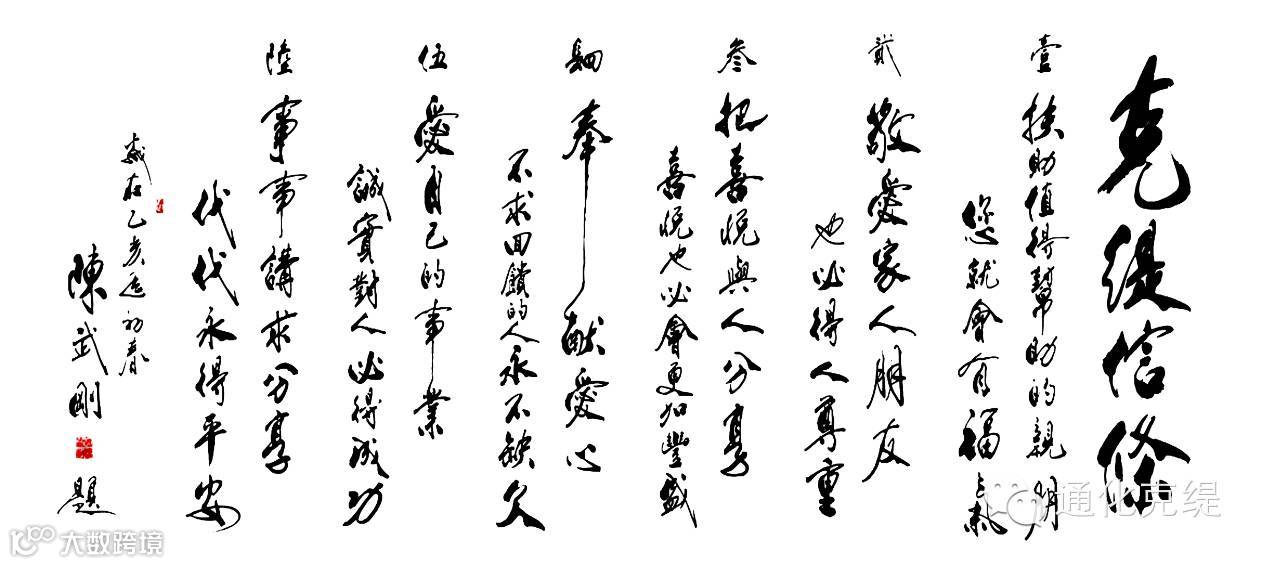 克緹信條
壹 扶助值得幫助的親朋
您就會有福氣
貳 敬愛家人朋友
也必得人尊重
叁 把喜悅與人分享
喜悅也必會更加豐盛
肆 奉献愛心
不求回饋的人永不缺欠
伍 愛自己的事業
誠實對人必得成功
陸 事事講求分享
代代永得平安
歲在乙亥初春
陳武剛 題
通化克缇
大数跨境